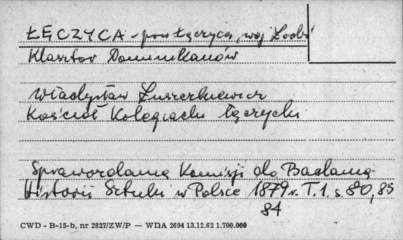 ŁĘCZYCA - pow Łęczyca, woj Łódź
Klasztor Dominikanów
Władysław Łuszczkiewicz
Kościół Kolegiacki łęczycki
Sprawozdania Komisji dla Badania
Historii Sztuki w Polsce 1879 r. T. 1. s 80, 85
84
CWD - B-15-b, nr 2827/ZW/P — WDA 2694 13.12.62 1.700.000